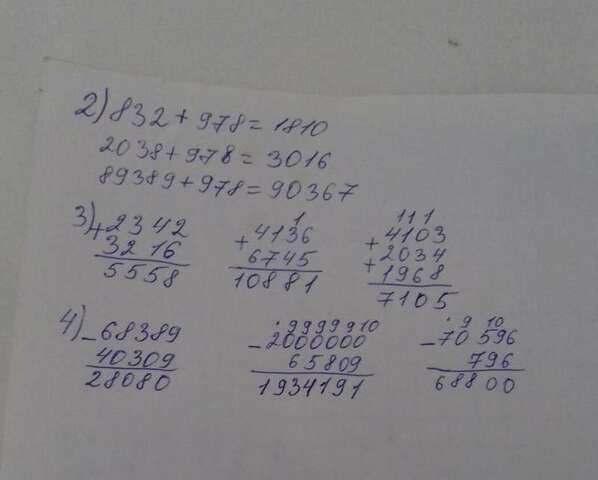 2) 832 + 978 = 1810
2038 + 978 = 3016
89389 + 978 = 90367
1 111
3) + 2342 + 4136 + 4103
3216 6745 + 2034
5558 10881 1968
7105
. 9 9 9 9 9 10 . 9 10
4) - 68389 - 2000000 - 70596
40309 65809 796
28080 1934191 68800